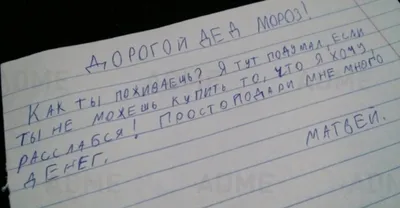 ДОРОГОЙ ДЕД МОРОЗ!
КАК ТЫ ПОЖИВАЕШЬ? Я ТУТ ПОДУМАЛ, ЕСЛИ
ТЫ НЕ МОЖЕШЬ КУПИТЬ ТО, ЧТО Я ХОЧУ,
РАССЛАБСЯ! ПРОСТО ПОДАРИ МНЕ МНОГО
ДЕНЕГ.
МАТВЕЙ.
ADME
ADME
ADME